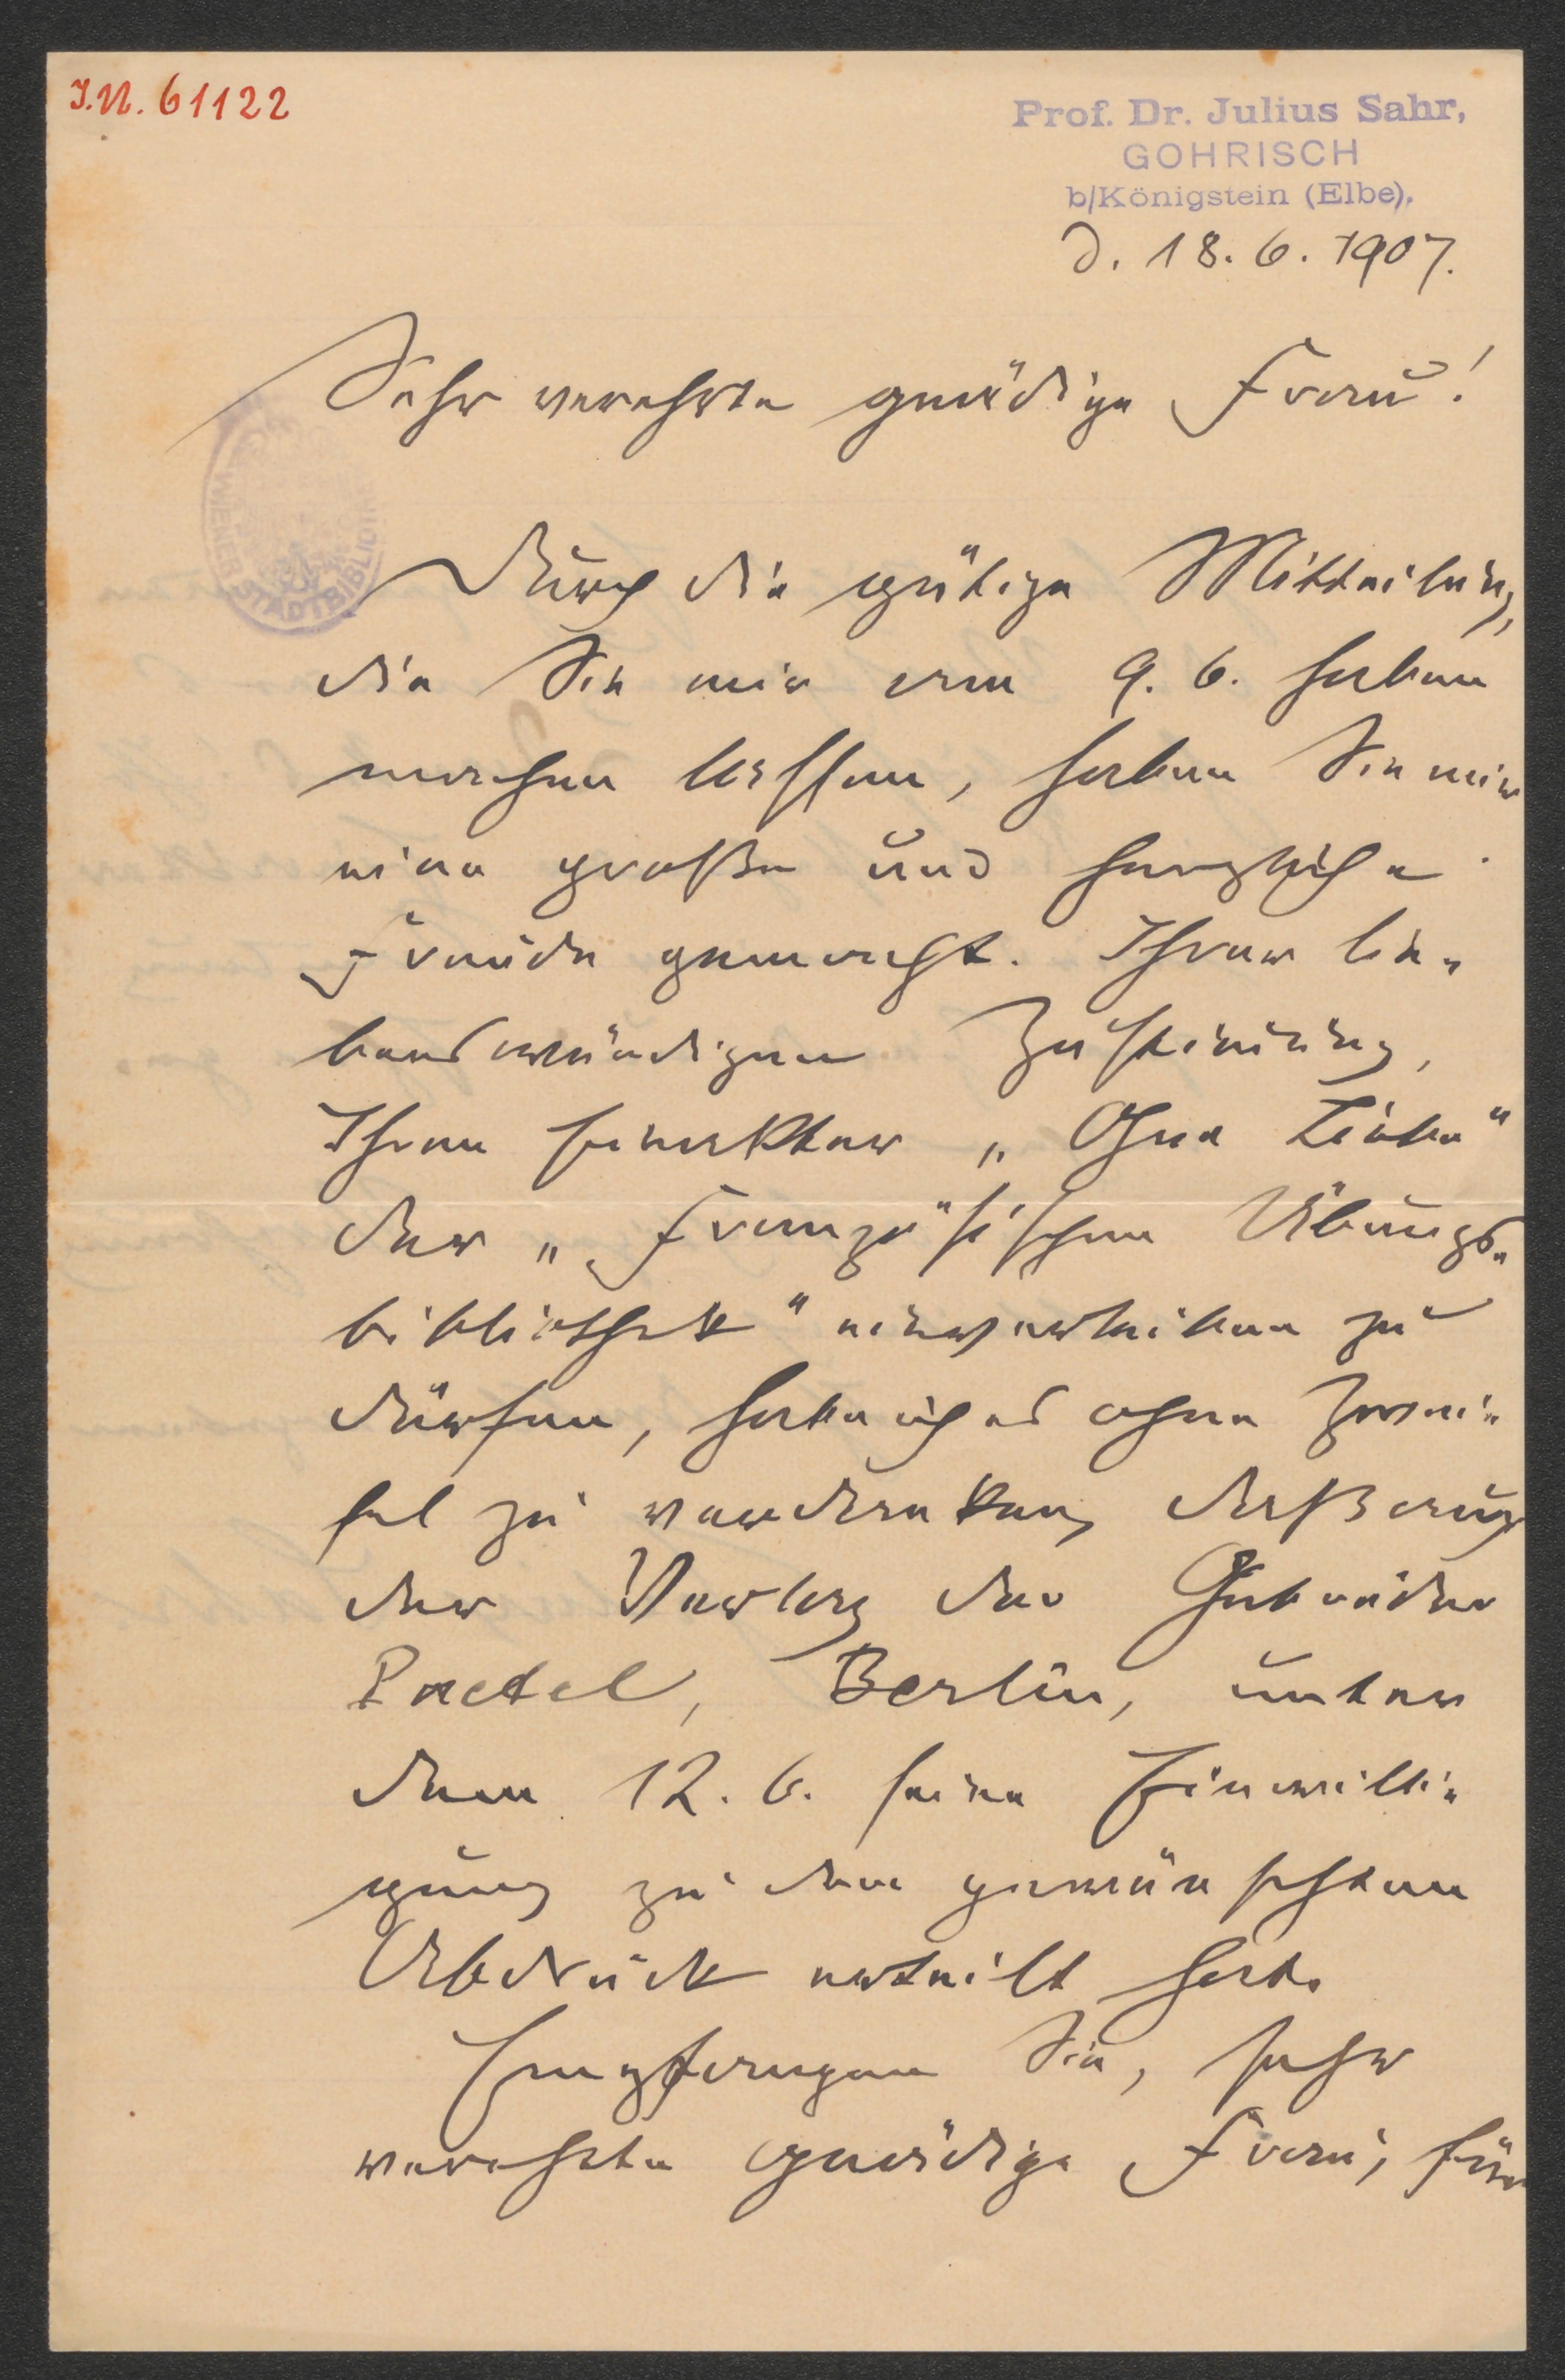 I.N. 61122
Prof. Dr. Julius Sahr,
GOHRISCH
b/Königstein (Elbe).
d. 18. 6. 1907.
Sehr verehrte gnädige Frau!
WIENER STADTBIBLIOTHEK
Durch die gütige Mitteilung,
die Sie mir am 9. 6. haben
machen lassen, haben Sie mir
eine große und herzliche
Freude gemacht. Ihrer lie-
benswürdigen Zustimmung,
Ihren Einakter „Ohne Liebe"
der „Französischen Übungs-
bibliothek" einverleiben zu
dürfen, habe ich es ohne Zwei-
fel zu verdanken, daß auch
der Verlag der Gebrüder
Paetel, Berlin, unter
dem 12. 6. seine Einwilli-
gung zu dem gewünschten
Abdruck erteilt hat.
Empfangen Sie, sehr
verehrte gnädige Frau, für